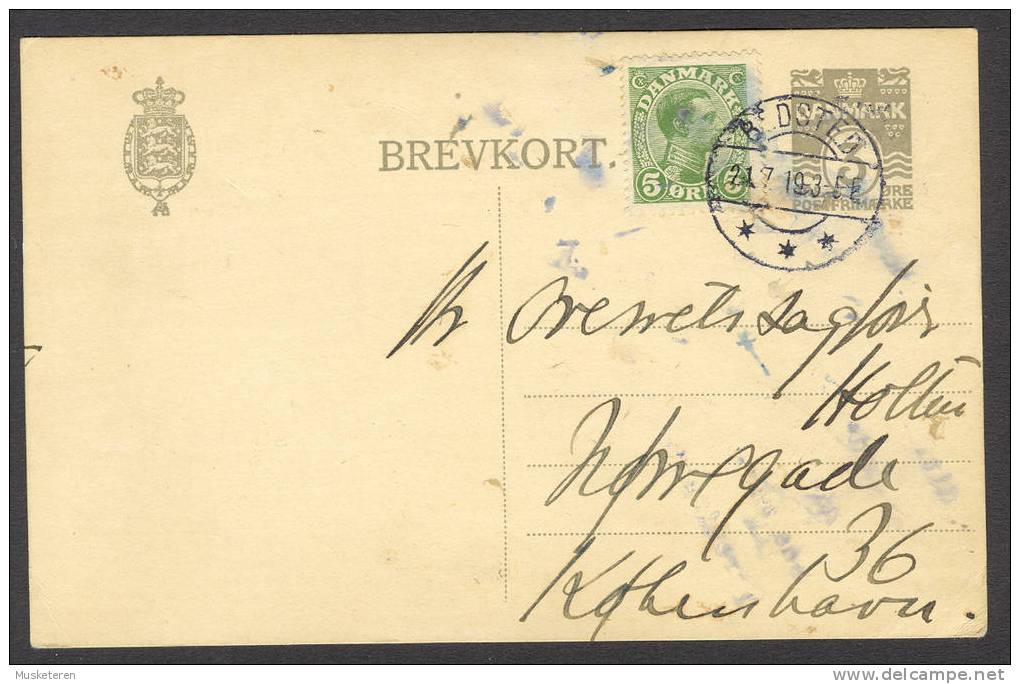 BREVKORT.
DANMARK
5 ØRE 5
DANMARK
ØRE
POSTFRIMÆRKE
BEDSTED
21.7.19.3-5 E
Hr Overretssagfører
Holten
Nørregade
36
København.
Musketeren
http://www.delcampe.net